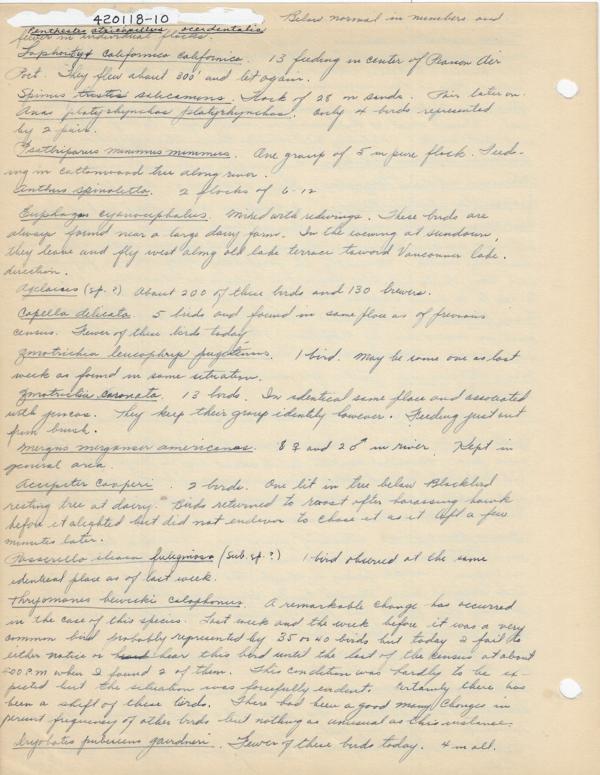 420118-10
Penthestes atricapillus occidentalis Below normal in numbers and
fewer in individual flocks.
Lophortyx californica californica. 13 feeding in center of Pearson Air
Port. They flew about 300' and let again.
Spinus tristis salicamans. Flock of 28 on sands. Pair later on.
Anas platyrhynchos platyrhynchos. Only 4 birds represented
by 2 pair.
Psaltriparus minimus minimus. One group of 5 in pure flock. Feed-
ing in cottonwood tree along river.
Anthus spinoletta. 2 flocks of 6-12
Euphagus cyanocephalus. Mixed with redwings. These birds are
always found near a large dairy farm. In the evening at sundown,
they leave and fly west along old lake terrace toward Vancouver lake
direction.
Agelaius (sp.?) About 200 of these birds and 130 brewers.
Capella delicata. 5 birds and found in same place as of previous
census. Fewer of these birds today.
Zonotrichia leucophrys pugetensis. 1 bird. May be same one as last
week as found in same situation.
Zonotrichia coronata. 13 birds. In identical same place and associated
with juncos. They keep their group identity however. Feeding just out
from brush.
Mergus merganser americanus. 8 ♀ and 2 ♂ in river. Kept in
general area.
Accipiter cooperi. 2 birds. One lit in tree below Blackbird
resting tree at dairy. Birds returned to roost after harassing hawk
before it alighted but did not endevor to chase it as it left a few
minutes later.
Passerella iliaca fuliginosa (sub. sp.?) 1 bird observed at the same
identical place as of last week.
Thryomanes bewicki calophonus. A remarkable change has occurred
in the case of this species. Last week and the week before it was a very
common bird probably represented by 35 or 40 birds but today I fail to
either notice or hear this bird until the last of the census at about
P.M when I found 2 of them. This condition was hardly to be ex-
pected but the situation was forcefully evident. Certainly there has
been a shift of these birds. There had been a good many changes in
percent frequency of other birds but nothing as unusual as this instance.
Dryobates pubescens gairdneri. Fewer of these birds today. 4 in all.